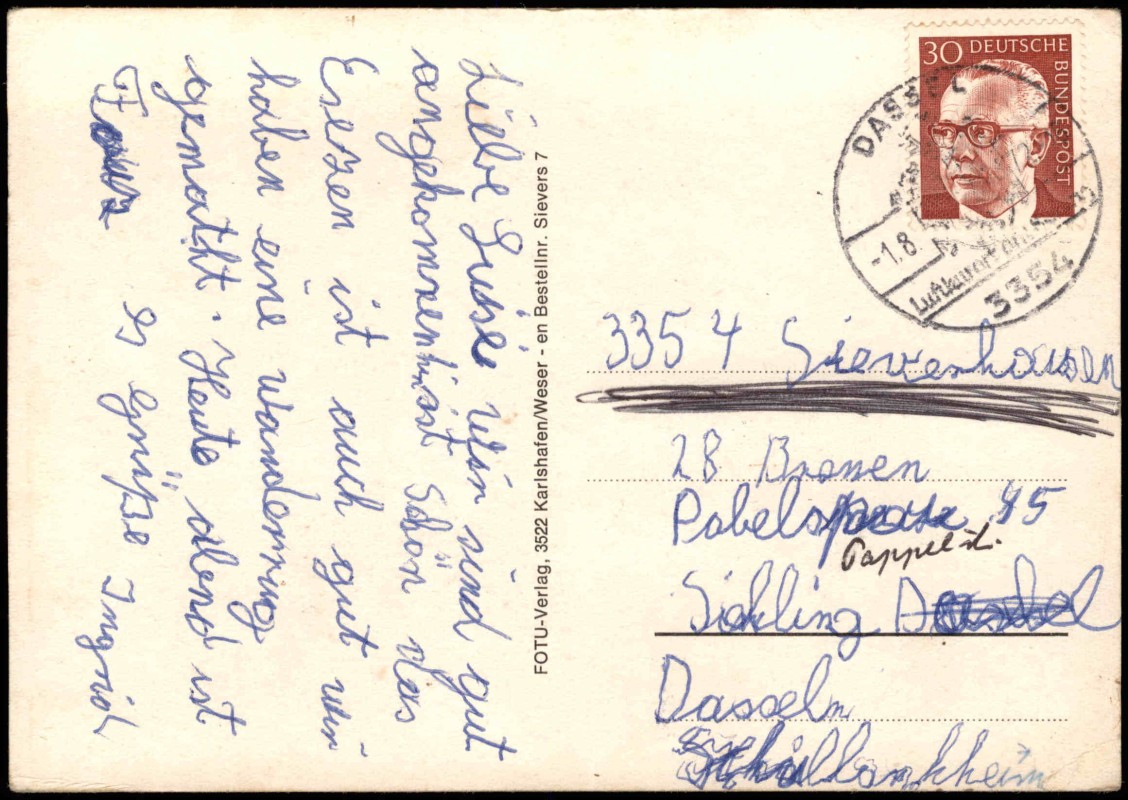 Liebe Susie wir sind gut
angekommen hir ist Schön das
Eszen ist auch gut wir
haben eine wanderrung
gematht. Heute abend ist
es Grüße Ingrid
FOTU-Verlag, 3522 Karlshafen/Weser - en Bestellnr. Sievers 7
30 DEUTSCHE BUNDESPOST
DASSEL
-1.8
Luftkurort
3354
3354 Sievershausen
28 Bremen
Pabels 95
Pappelst.
Dasseln